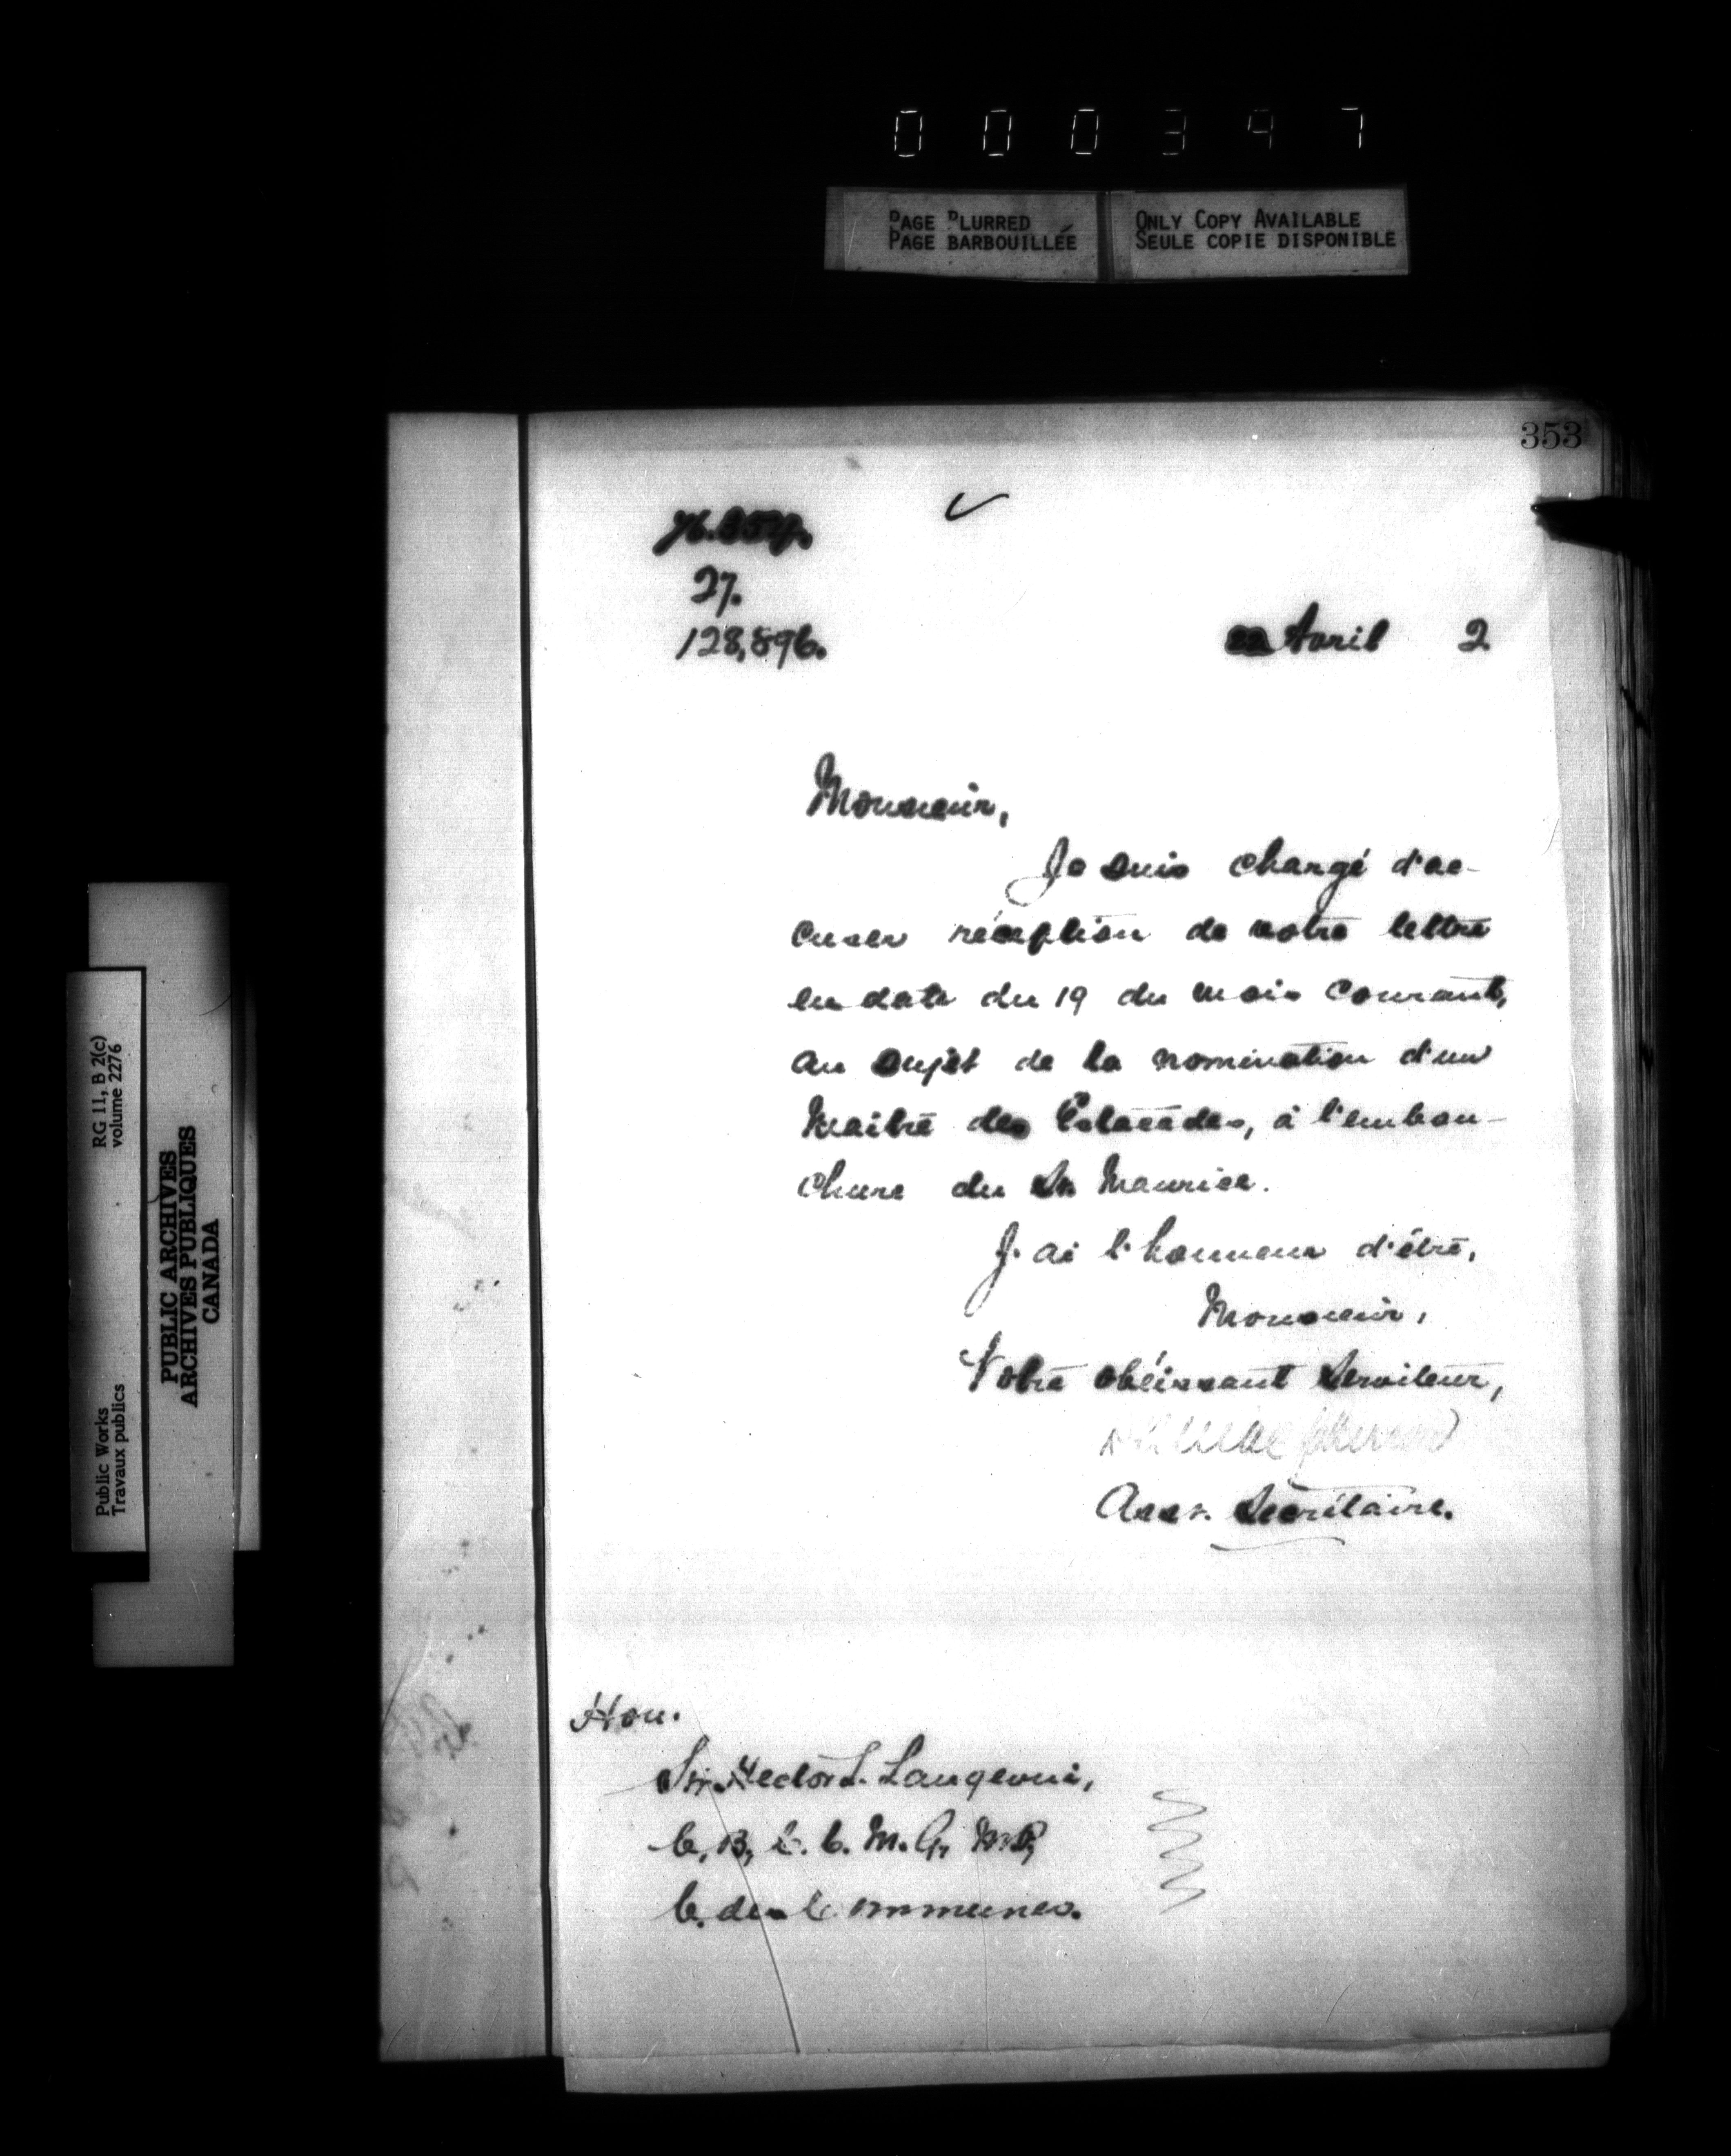 000347
PAGE BLURRED
PAGE BARBOUILLÉE
ONLY COPY AVAILABLE
SEULE COPIE DISPONIBLE
353
27.
128,896.
22 Avril 2
Monsieur,
Je suis chargé d'ac-
cuser réception de votre lettre
en date du 19 du mois courant,
au sujet de la nomination d'un
Maitre des Estacades, à l'embou-
chure du St. Maurice.
J'ai l'honneur d'être,
Monsieur,
Votre obéissant Serviteur,
Asst. Secrétaire.
Hon.
Sir Hector L. Langevin,
C. B, K. C. M. G, M.P,
C. des Communes.
RG 11, B 2(c)
volume 2276
Public Works
Travaux publics
PUBLIC ARCHIVES
ARCHIVES PUBLIQUES
CANADA